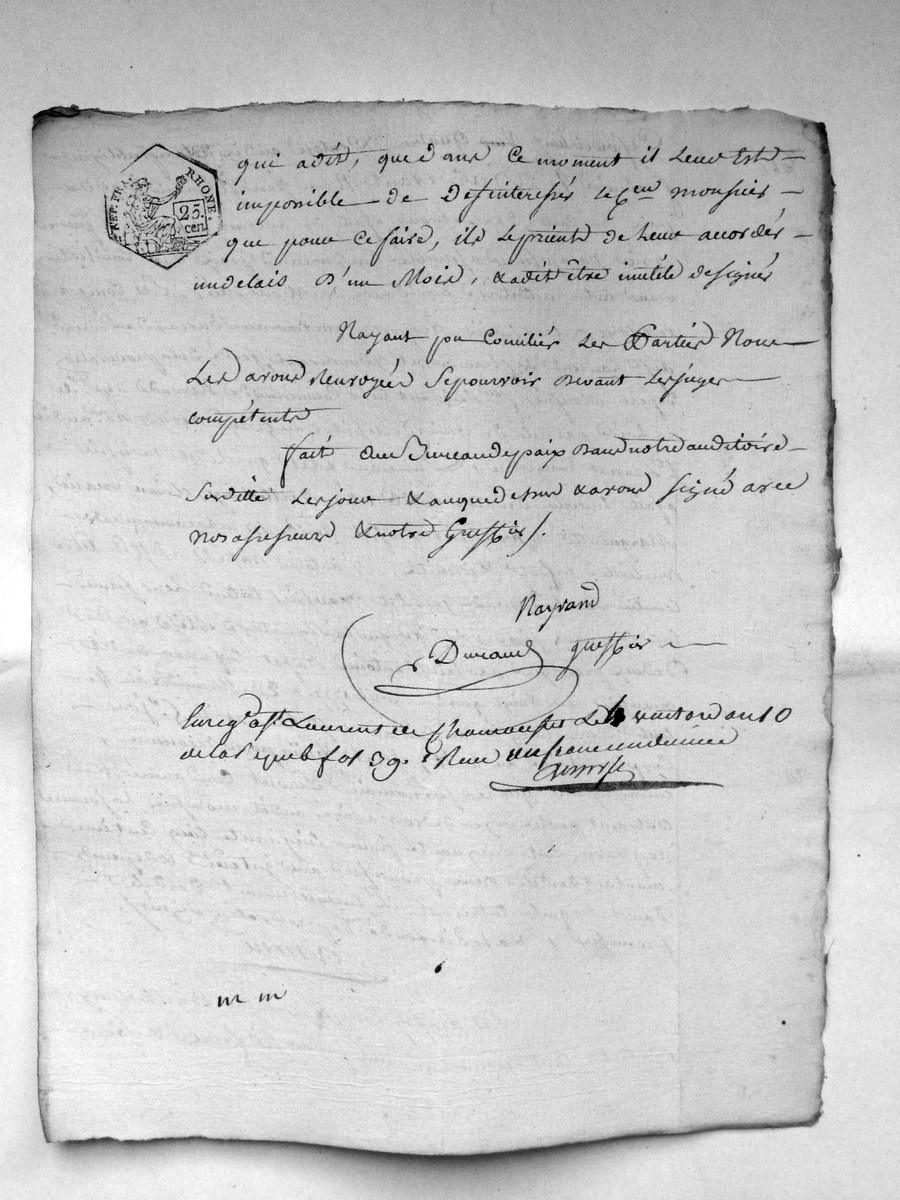 REP. FRA.
RHONE.
25.
cen
qui adit, que dans Ce moment il Leur Est
impossible de Desinteressés le Cen monsier
que pour Ce faire, ils Le prient de Leur accordér
undelais D'un Mois, & adit être inutile designér
Nayant pu Conciliér Les Partiés Nous
Les avons Renvoyées Sepourvoir Devant Lesjuges
compétents
fait au Bureaudepaix Dansnotreauditoire
Sur dite Lesjour & anquedessus & avons signé avec
Nos assesseurs & notre Greffier /.
Nayrand
Durand greffier
Enregt a St Laurent de Chamousset Le 4 an 10
dela Repub fol 39. Reçu un franc
m m